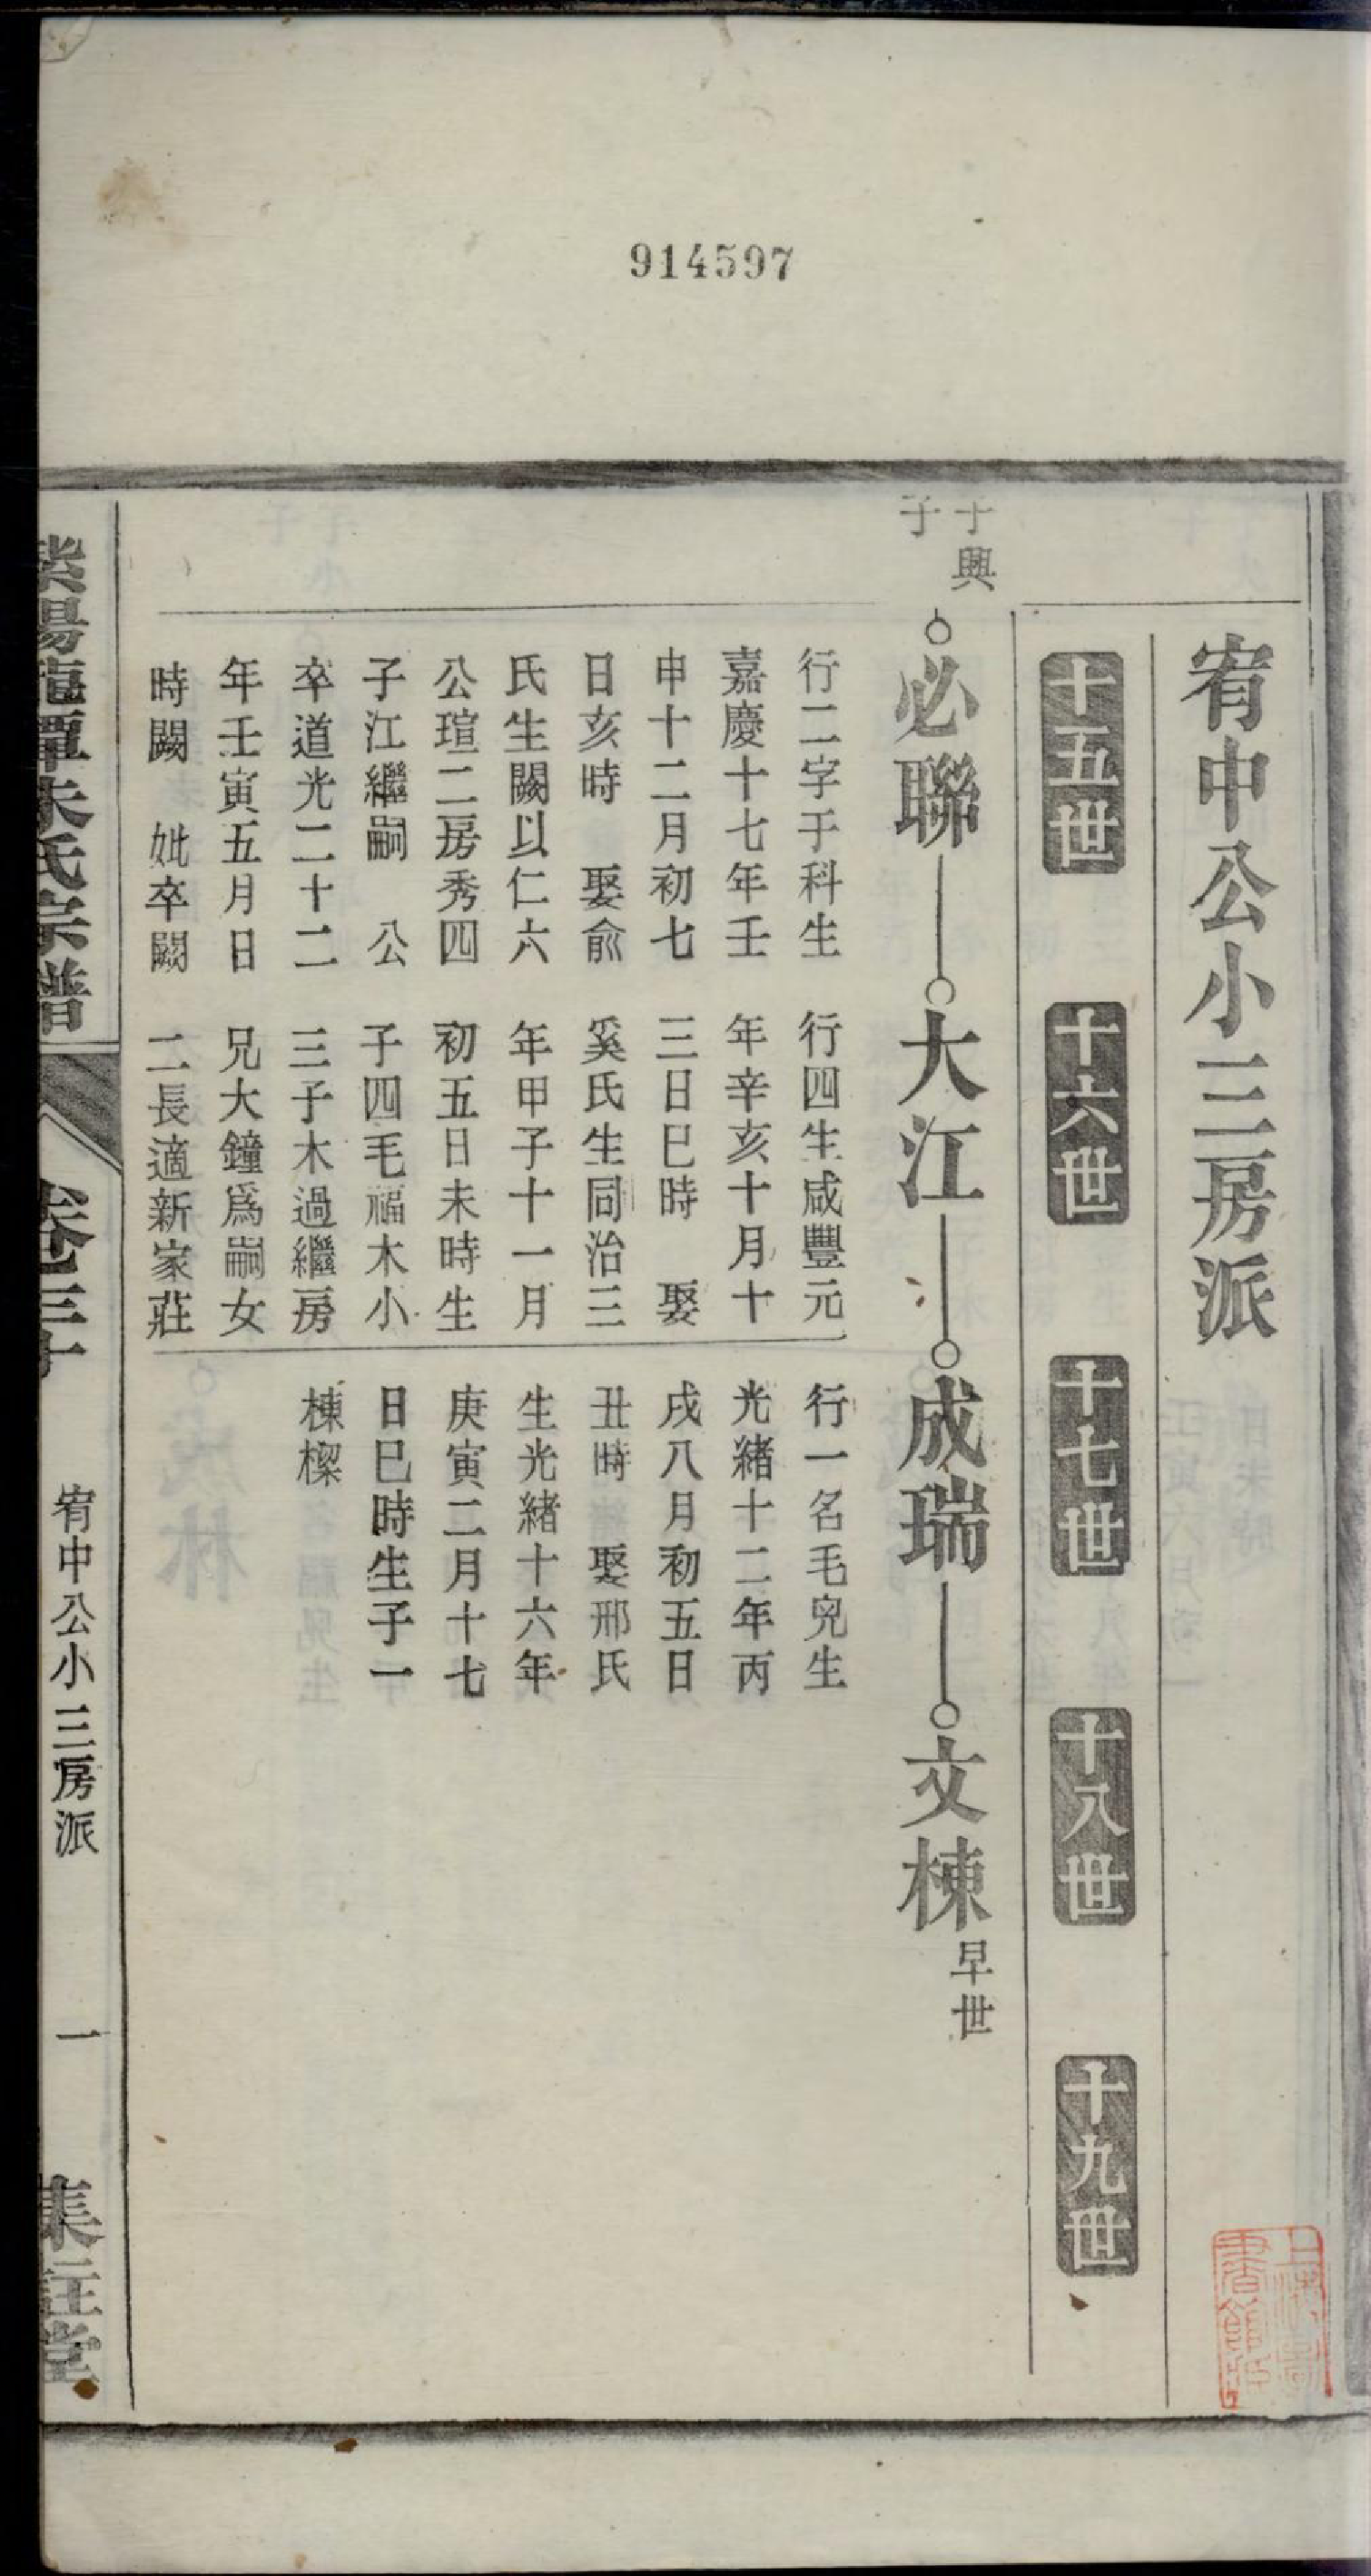 914597
宥中公小三房派
十五世
十六世
十七世
十八世
十九世
于興
子
必聯
大江
成瑞
文棟
早世
行二字于科生
嘉慶十七年壬
申十二月初七
日亥時 娶俞
氏生闕以仁六
公瑄二房秀四
子江繼嗣 公
卒道光二十二
年壬寅五月日
時闕 妣卒闕
行四生咸豐元
年辛亥十月十
三日巳時 娶
奚氏生同治三
年甲子十一月
初五日未時生
子四毛福木小
三子木過繼房
兄大鐘爲嗣女
二長適新家莊
行一名毛兒生
光緒十二年丙
戌八月初五日
丑時 娶邢氏
生光緒十六年
庚寅二月十七
日巳時生子一
棟樑
紫陽龍潭朱氏宗譜
卷三十
宥中公小三房派
一
集註堂